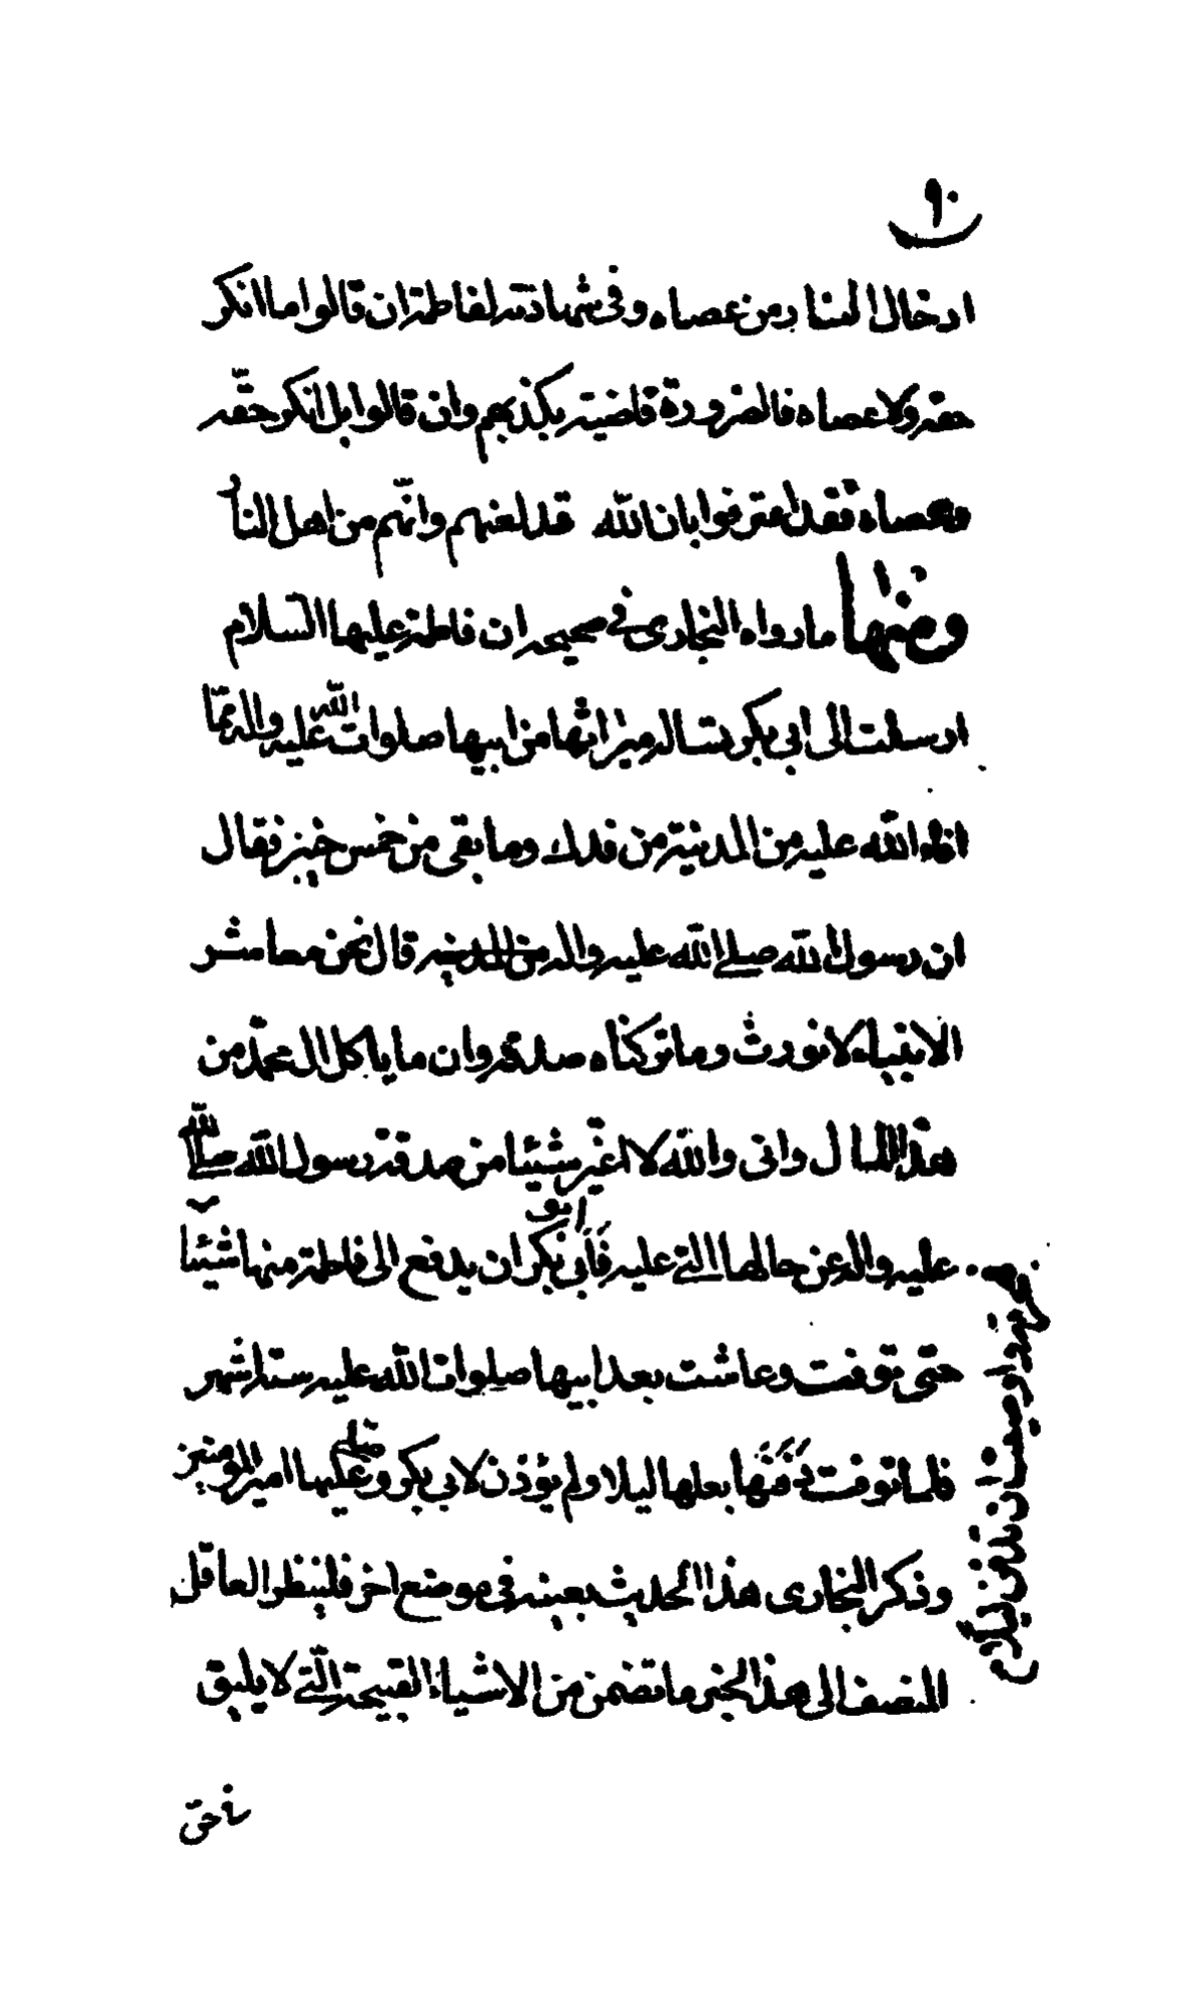 ٩٠
ادخال النار من عصاه وفى شهادته لفاطمة ان قالوا ما انكر
حقه ولا عصاه فالضرورة قاضية بكذبهم وان قالوا بل انكر حقّه
وعصاه فقد اعترفوا بان الله قد لعنهم وانّهم من اهل النار
ومنها ما رواه البخارى في صحيحه ان فاطمة عليها السلام
ارسلت الى ابى بكر تساله ميراثها من ابيها صلوات الله عليه واله ممّا
افاء الله عليه من المدينة من فدك وما بقى من خمس خيبر فقال
ان رسول الله صلى الله عليه واله من المدينه قال نحن معاشر
الانبياء لا نورث وما تركناه صدقة وان ما ياكل ال محمّد من
هذا المال وانى والله لا اغيّر شيئا من صدقة رسول الله صلى الله
عليه واله عن حالها التى عليه فأبى ابو بكر ان يدفع الى فاطمة منها شيئا
حتى توفت وعاشت بعد ابيها صلوات الله عليه ستة اشهر
فلما توفت دَفَنَها بعلها ليلا ولم يؤذن لابى بكر وصلى عليها امير المومنين
وذكر البخارى هذا الحديث بعينه في موضع اخر فلينظر العاقل
المنصف الى هذا الخبر ما تضمن من الاشياء القبيحة الّتى لا يليق
اوصت ان تدفن ليلا